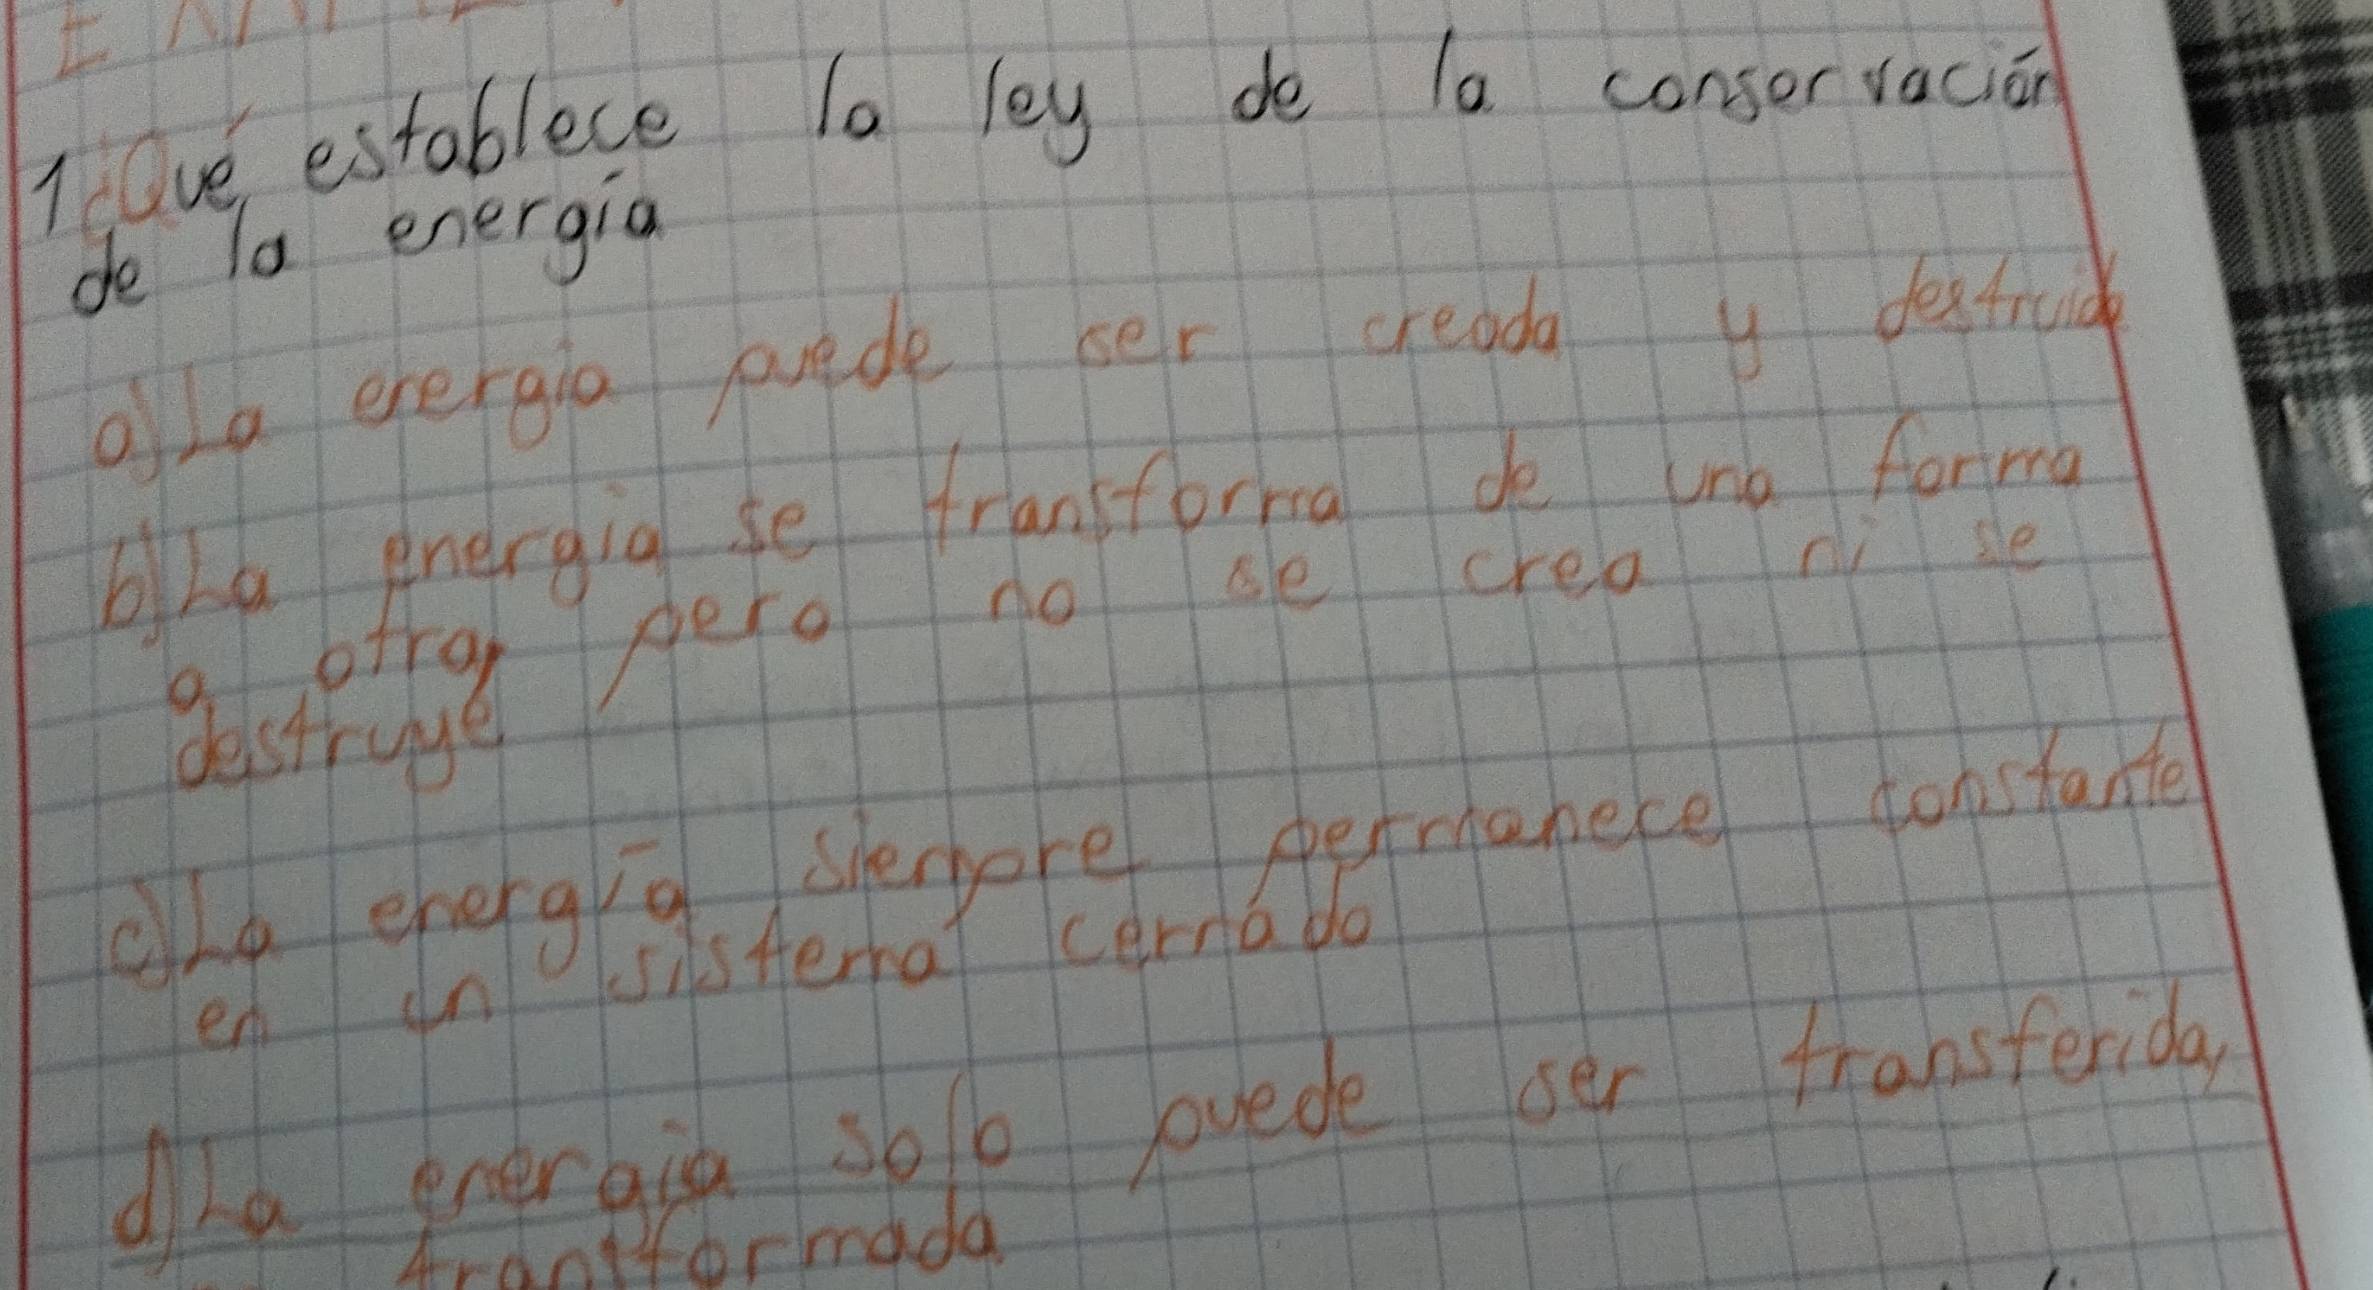 1 ¿Qué establece la ley de la conservación
de la energía
a) La energia puede ser creada y destruida
b) La energia se transforma de una forma
a otra, pero no se crea ni se
destruye
c) La energía siempre permanece constante
en un sistema cerrado
d) La energia solo puede ser transferida,
transformada